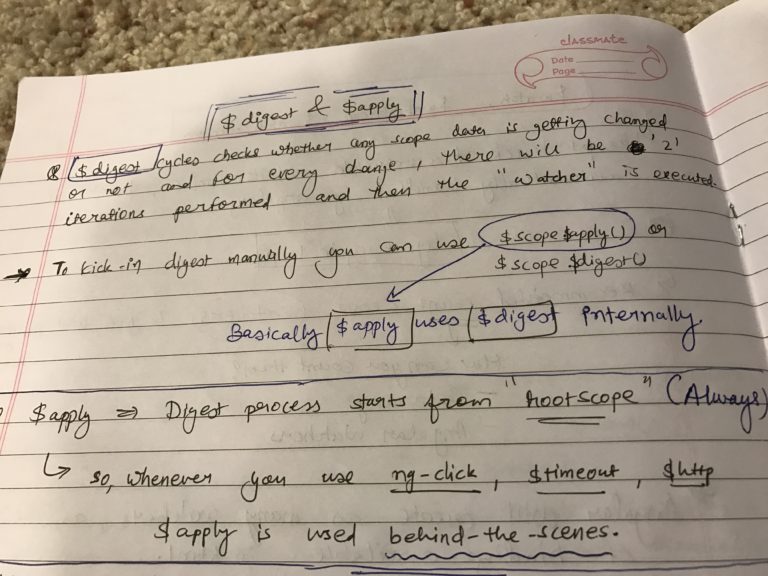 classmate
Date
Page
$digest & $apply
$digest cycles checks whether any scope data is getting changed
or not and for every change, there will be '2'
iterations performed and then the "watcher" is executed.
→ To kick-in digest manually you can use $scope $apply() or
$scope $digest()
Basically $apply uses $digest internally.
$apply ⇒ Digest process starts from "rootscope" (Always)
↳ so, whenever you use ng-click, $timeout, $http
$apply is used behind-the-scenes.